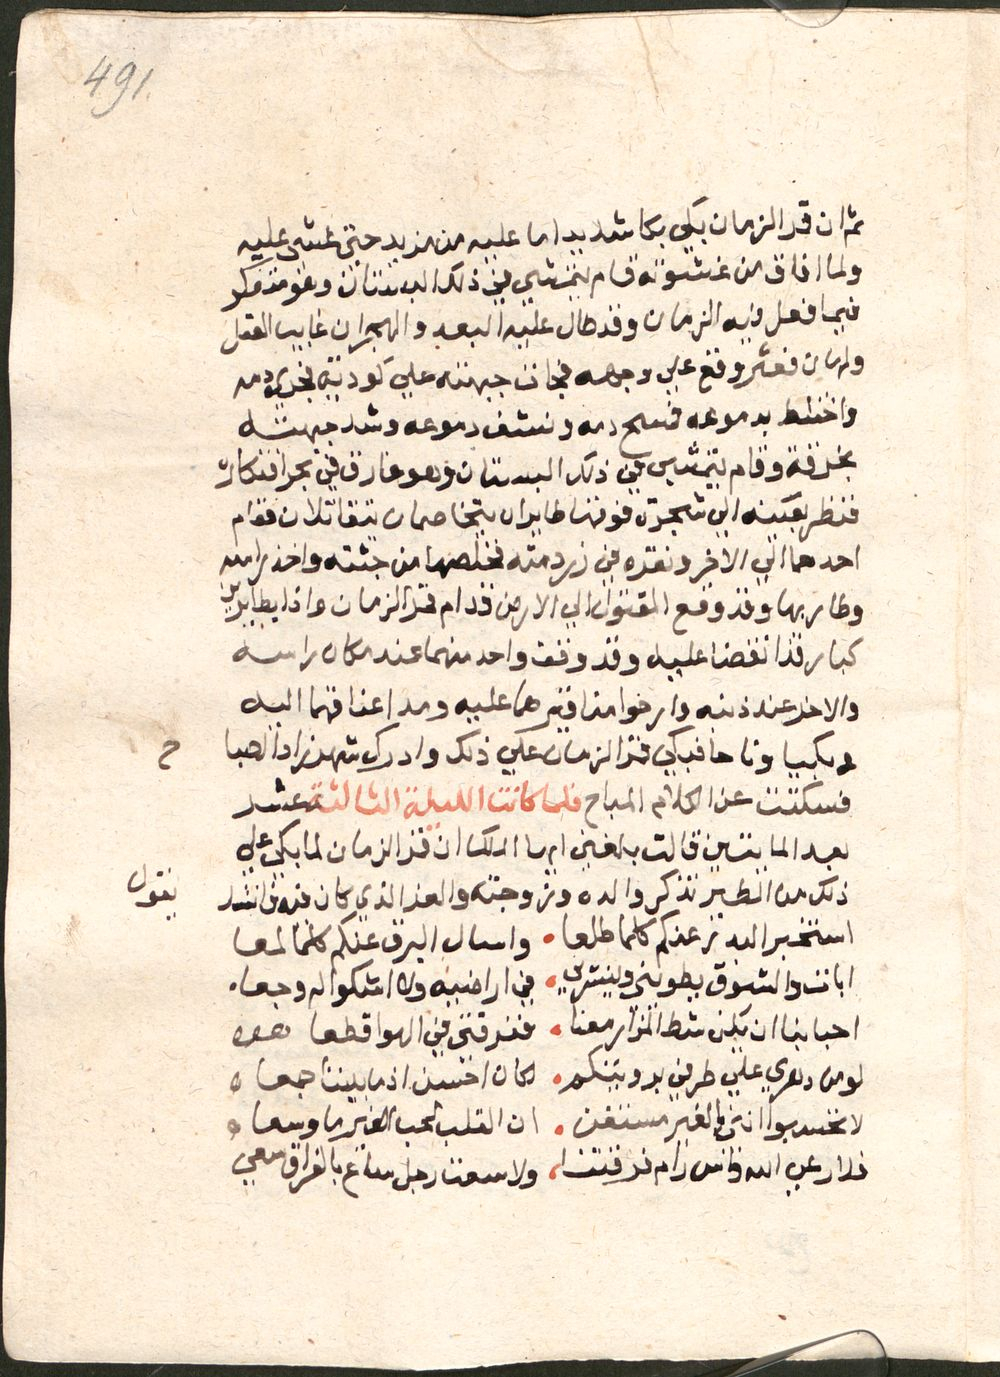 491
ثم ان قمر الزمان بكي بكا شديدا ما عليه من مزيد حتى غشي عليه
ولما افاق من غشوته قام يتمشي في ذلك البستان وهو متفكر
فيما فعل فيه الزمان وقد طال عليه البعد والهجران غايب العقل
ولهان فعثر وقع علي وجهه فجات جبهته علي فجري دمه
واختلط بدموعه فمسح دمه ونشف دموعه وشد جبهته
بخرقة وقام يتمشي في ذلك البستان وهو غارق في بحر افتكاره
فنظر بعينه الي شجرة فوقها طايران يتخاصمان يتقاتلان فقام
احدهما الي الاخر ونقره في زردمته فخلصها من جثته واخذ راسه
وطار بها وقد وقع المقتول الي الارض قدام قمر الزمان واذا بطايرين
كبار قد انقضا عليه وقد وقف واحد منهما عند مكان راسه
والاخر عند ذنبه وارخوا مناقيرهما عليه ومدا اعناقهما اليه
وبكيا وناحا فبكي قمر الزمان علي ذلك وادرك شهرزاد الصبا
ح
فسكتت عن الكلام المباح فلما كانت الليلة الثالثة عشر
بعد المايتين قالت بلغني ايها الملك ان قمر الزمان لما بكي علي
ذلك من الطير تذكر والده وزوجته والعز الذي كان فيه فانشد
يقول
استخبر البدر عنكم كلما طلعا • واسال البرق عنكم كلما لمعا
ابات والشوق يطويني وينشرني • في اراضيه ولا اشكوا له وجعا •
احبابنا ان يكن شط المزار معنا • ففرقتي في الهوا قطعا
لو من دهري علي طرفي برويتكم • لكان احسن اذ ما بيننا جمعا ه
لا تحسبوا انني بالغير مشتغل • ان القلب لحب الغير ما وسعا ه
فلا رعي الله وانس رام فرقتنا • ولا سعت رجل ساع بالفراق سعي